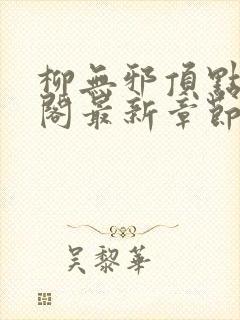 柳無邪頂點
閣最新章節
吳黎華